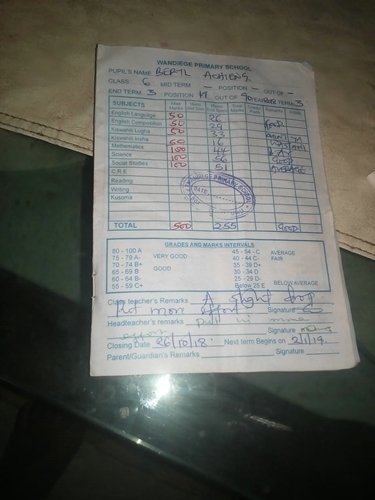 WANDIEGE PRIMARY SCHOOL
PUPIL'S NAME BERYL ACHIENG
CLASS 6 MID TERM - POSITION - OUT OF -
END TERM 3 POSITION 17 OUT OF TERM 3
SUBJECTS Max Marks
English Language 50 26
English Composition 50 29
Kiswahili Lugha 50 33
Kiswahili Insha 50 16
Mathematics 100 44
Science 100 56 GOOD
Social Studies 100 51 AVERAGE
C.R.E
Reading
Writing
Kusoma
WANDIEGE PRIMARY SCHOOL
DATE
TOTAL 500 255 GOOD
GRADES AND MARKS INTERVALS
80 - 100 A 45 - 54 - C AVERAGE
75 - 79 A- VERY GOOD 40 - 44 C- FAIR
70 - 74 B+ 35 - 39 D+
65 - 69 B GOOD 30 - 34 D
60 - 64 B- 25 - 29 D-
55 - 59 C+ Below 25 E BELOW AVERAGE
Class teacher's Remarks A slight drop
Put more effort Signature
Headteacher's remarks Put in more
effort Signature
Closing Date 26/10/18 Next term Begins on 2/1/19
Parent/Guardian's Remarks Signature